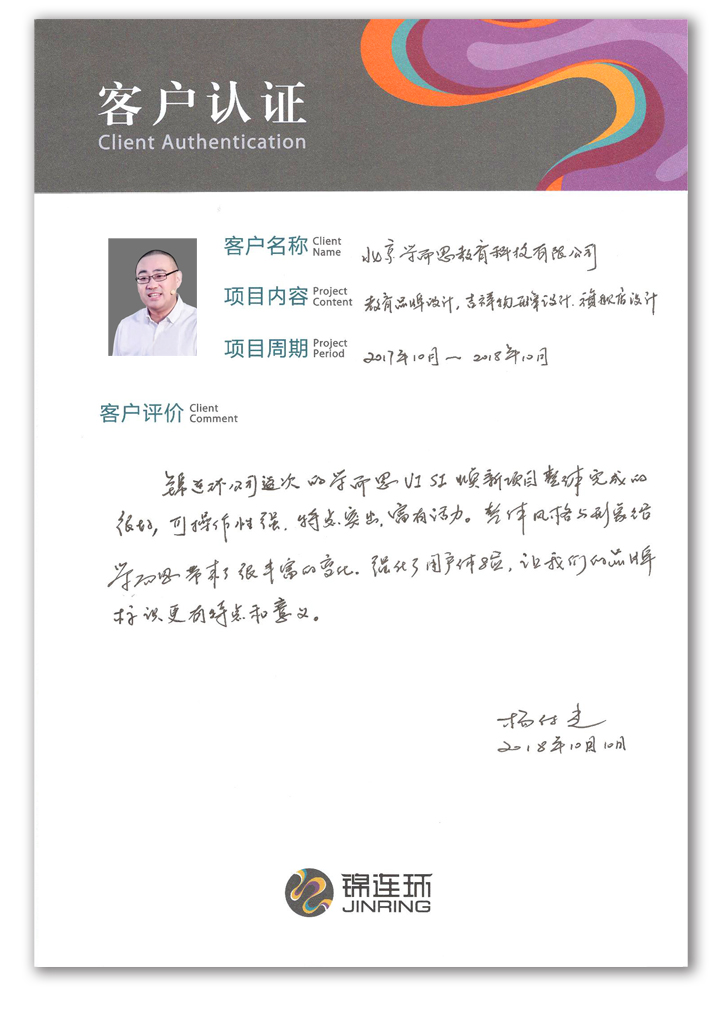 客户认证
Client Authentication
客户名称 Client Name 北京学而思教育科技有限公司
项目内容 Project Content 教育品牌设计，吉祥物形象设计、旗舰店设计
项目周期 Project Period 2017年10月～2018年10月
客户评价 Client Comment
锦连环公司这次的学而思VI SI焕新项目整体完成的
很好，可操作性强、特点突出、富有活力。整体风格与形象给
学而思带来了很丰富的变化、强化了用户体验，让我们的品牌
标识更有特点和意义。
杨付光
2018年10月10日
锦连环
JINRING